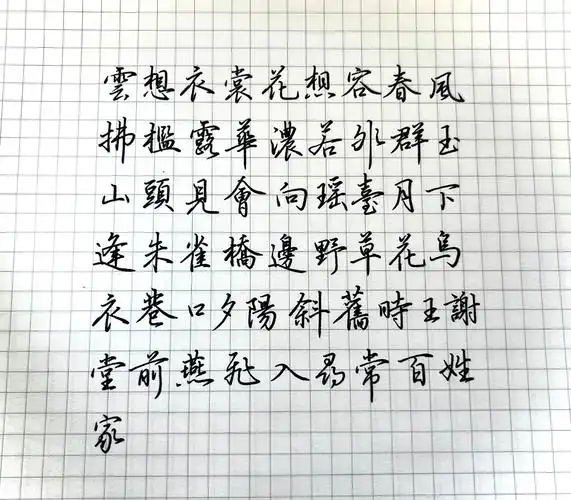 雲想衣裳花想容春風
拂檻露華濃若非群玉
山頭見會向瑶臺月下
逢朱雀橋邊野草花烏
衣巷口夕陽斜舊時王謝
堂前燕飛入尋常百姓
家